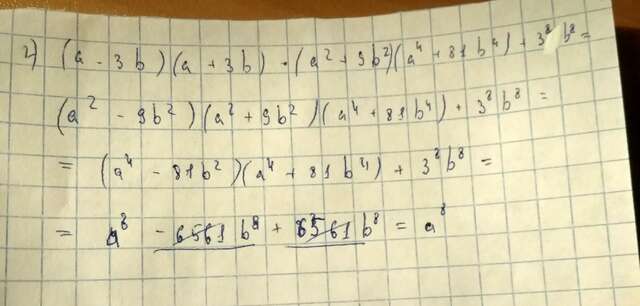 2) (a - 3b)(a + 3b) · (a² + 9b²)(a⁴ + 81b⁴) + 3⁸b⁸ =
(a² - 9b²)(a² + 9b²)(a⁴ + 81b⁴) + 3⁸b⁸ =
= (a⁴ - 81b²)(a⁴ + 81b⁴) + 3⁸b⁸ =
= a⁸ - 6561b⁸ + 6561b⁸ = a⁸